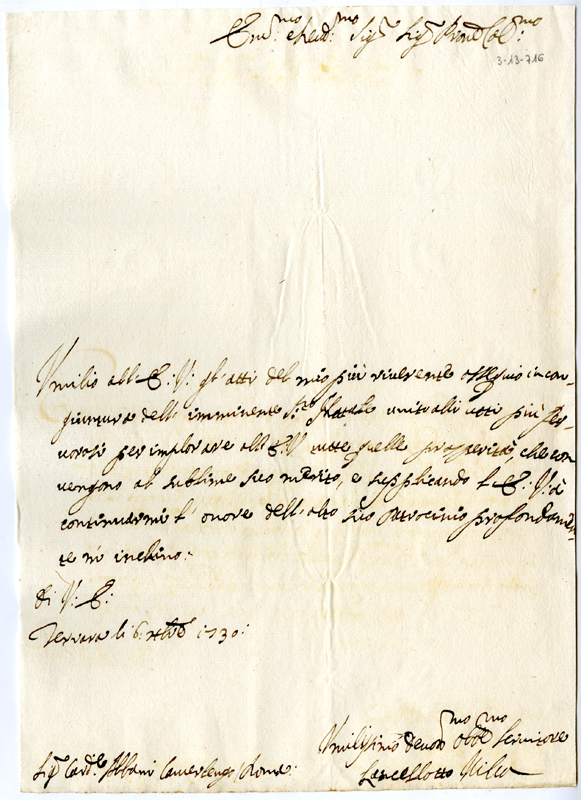 Em:mo e Rev:mo Sig:r Sig:r Pron Col:mo
3-13-716
Umilio all' E: V: gl' atti del mio più riverente ossequio in con-
giuntura dell' imminente S:to Natale uniti alli voti più fer-
vorosi per implorare all' E: V: tutte quelle prosperità, che con
vengono al sublime suo merito, e supplicando l' E: V: à
continuarmi l' onore dell' alto suo Patrocinio profondamen-
te m' inchino:
di V: E:
Ferrara li 6: Xbre 1730:
Umilissimo Devot:mo Obb:mo Servitore
Lancellotto
Sig:r Card:le Albani Camerlengo Roma: